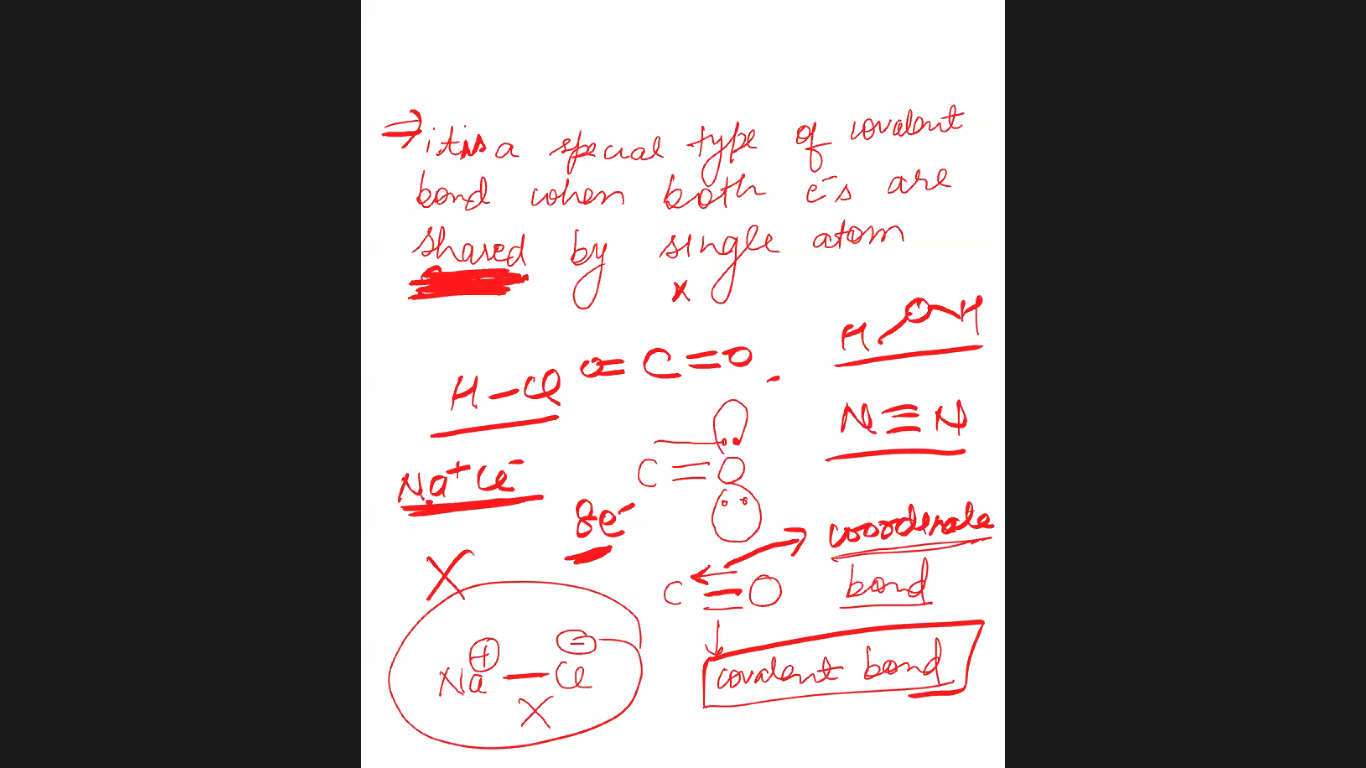 ⇒ it is a special type of covalent
bond when both e⁻s are
shared by single atom
x
H
O
H
O = C = O
H – Cl
N ≡ N
C = O
Na⁺ Cl⁻
8e⁻
coordenate
bond
C ≡ O
X
covalent bond
Na⊕ — Cl⊖
X